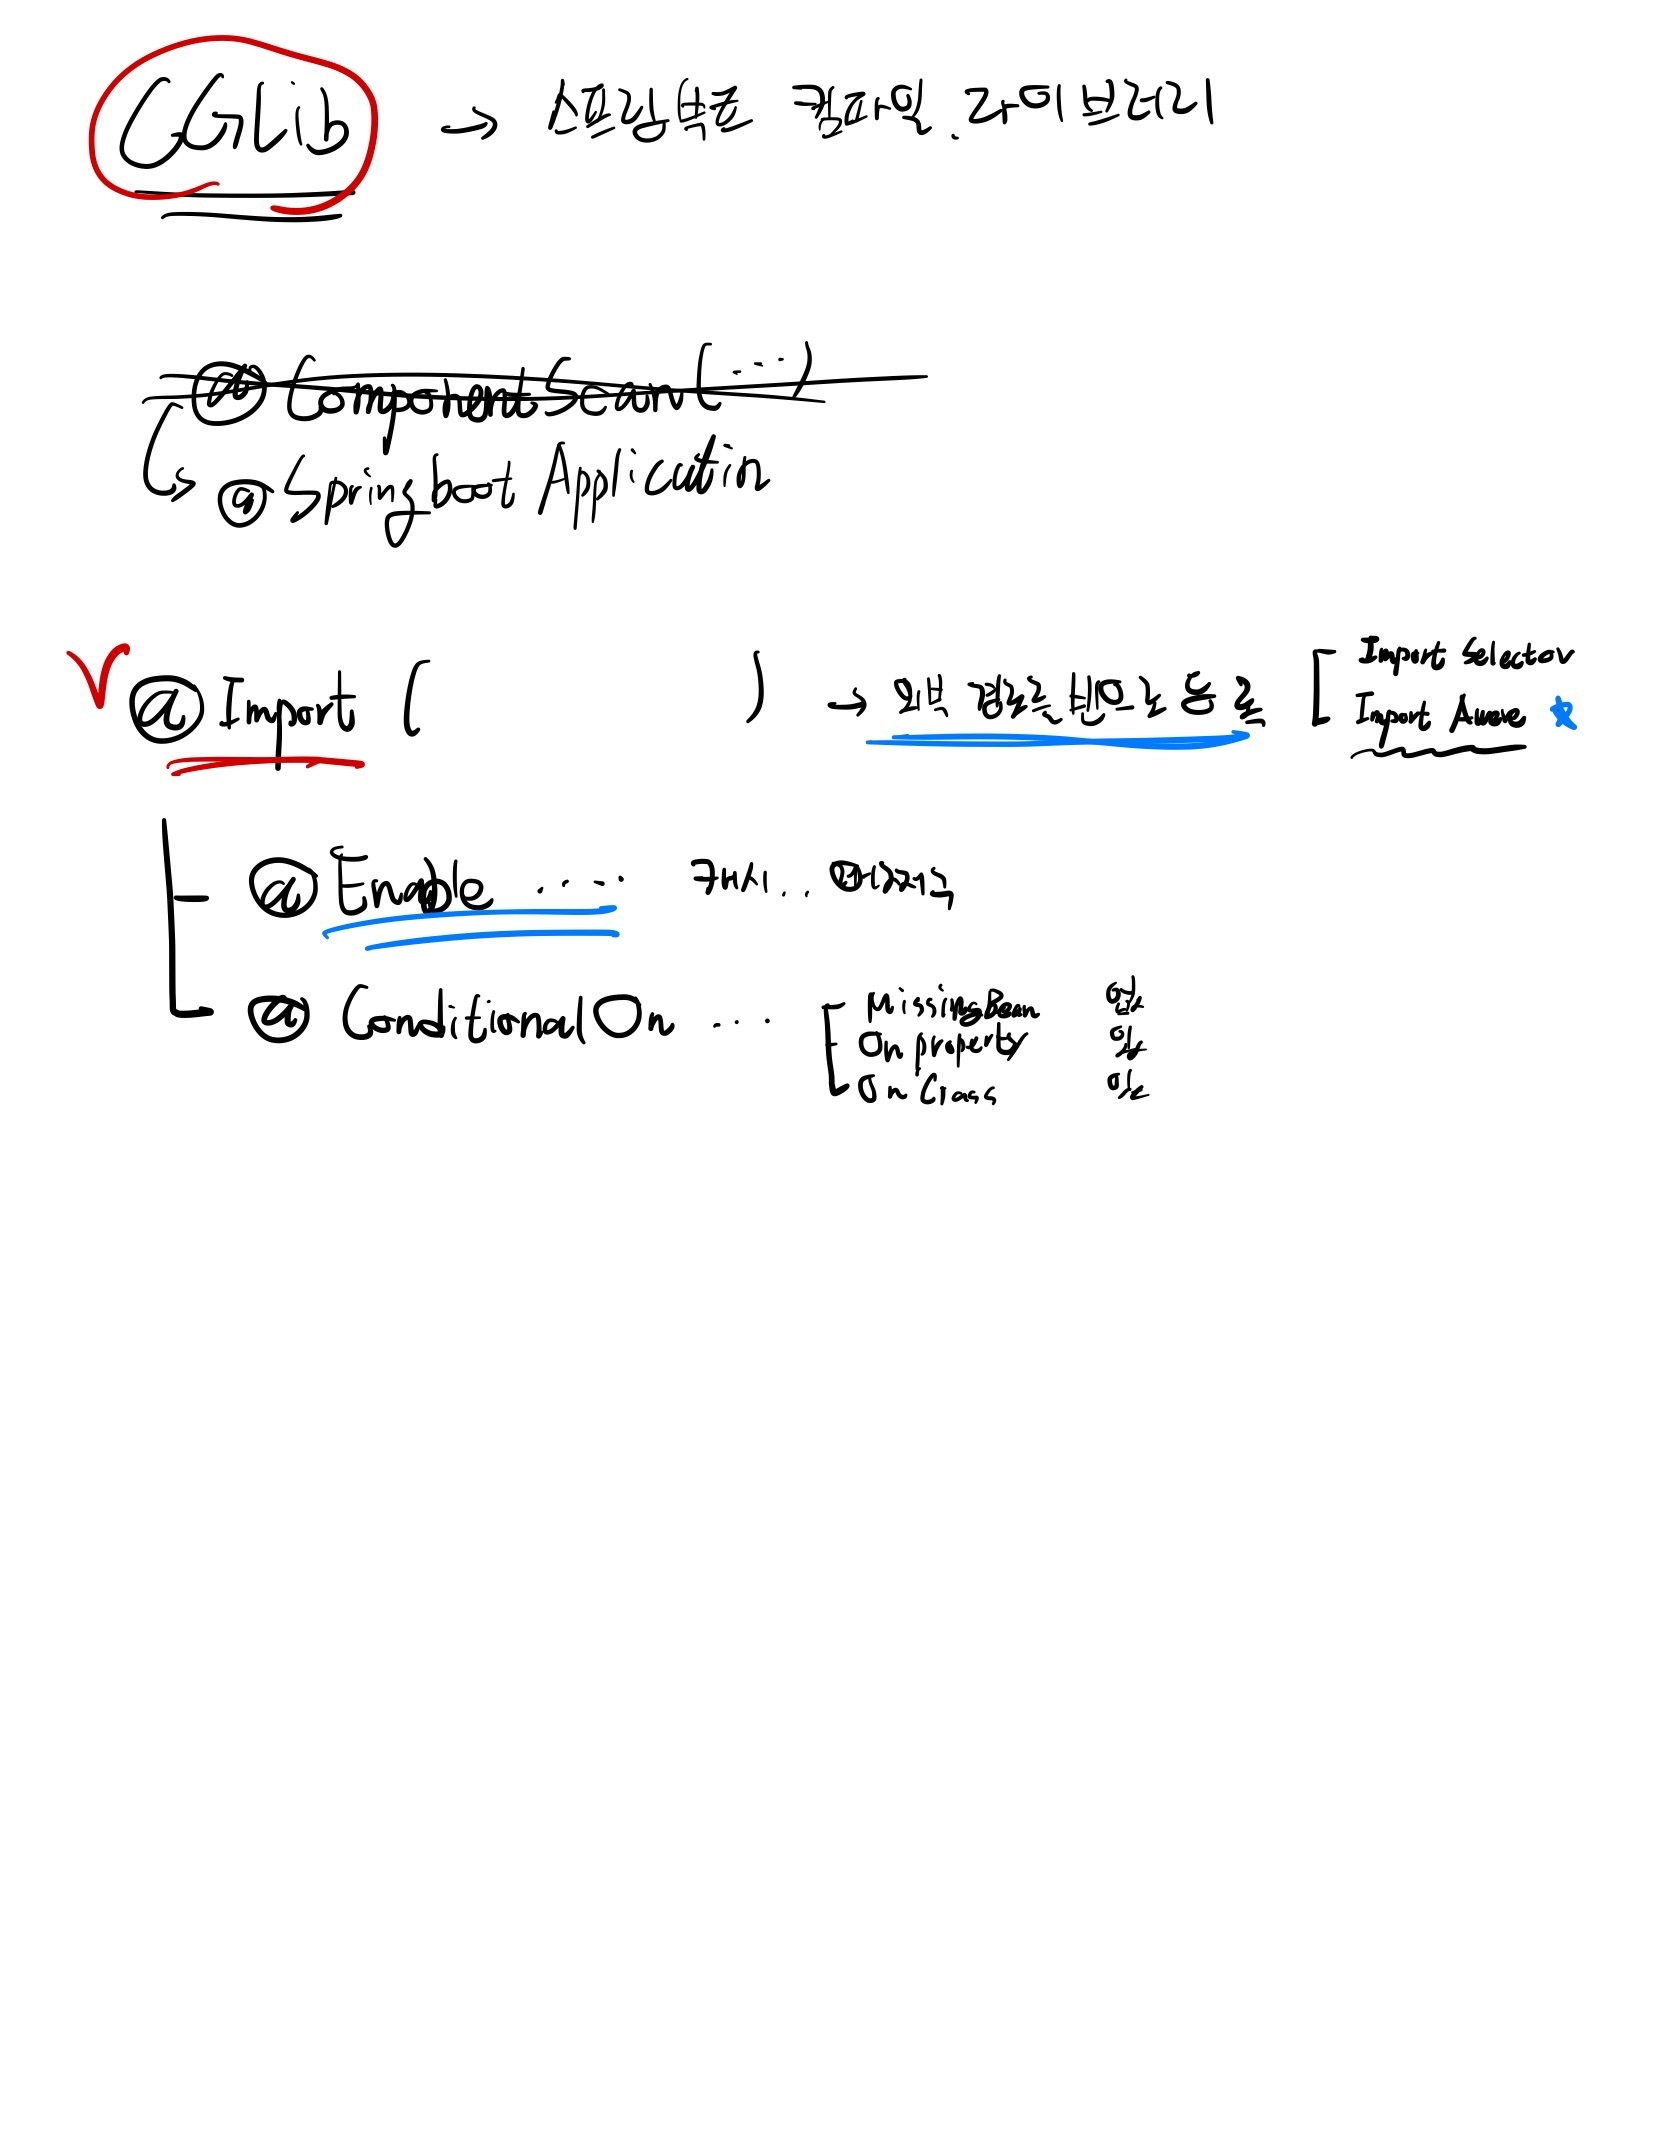 CGLib → 스프링부트 컴파일 라이브러리
@ComponentScan(...)
→ @Springboot Application
@Import ( ) → 외부 경로를 빈으로 등록
Import Selector
Import Aware
@Enable ..... 캐시..
@ConditionalOn ...
MissingBean
On property
On Class